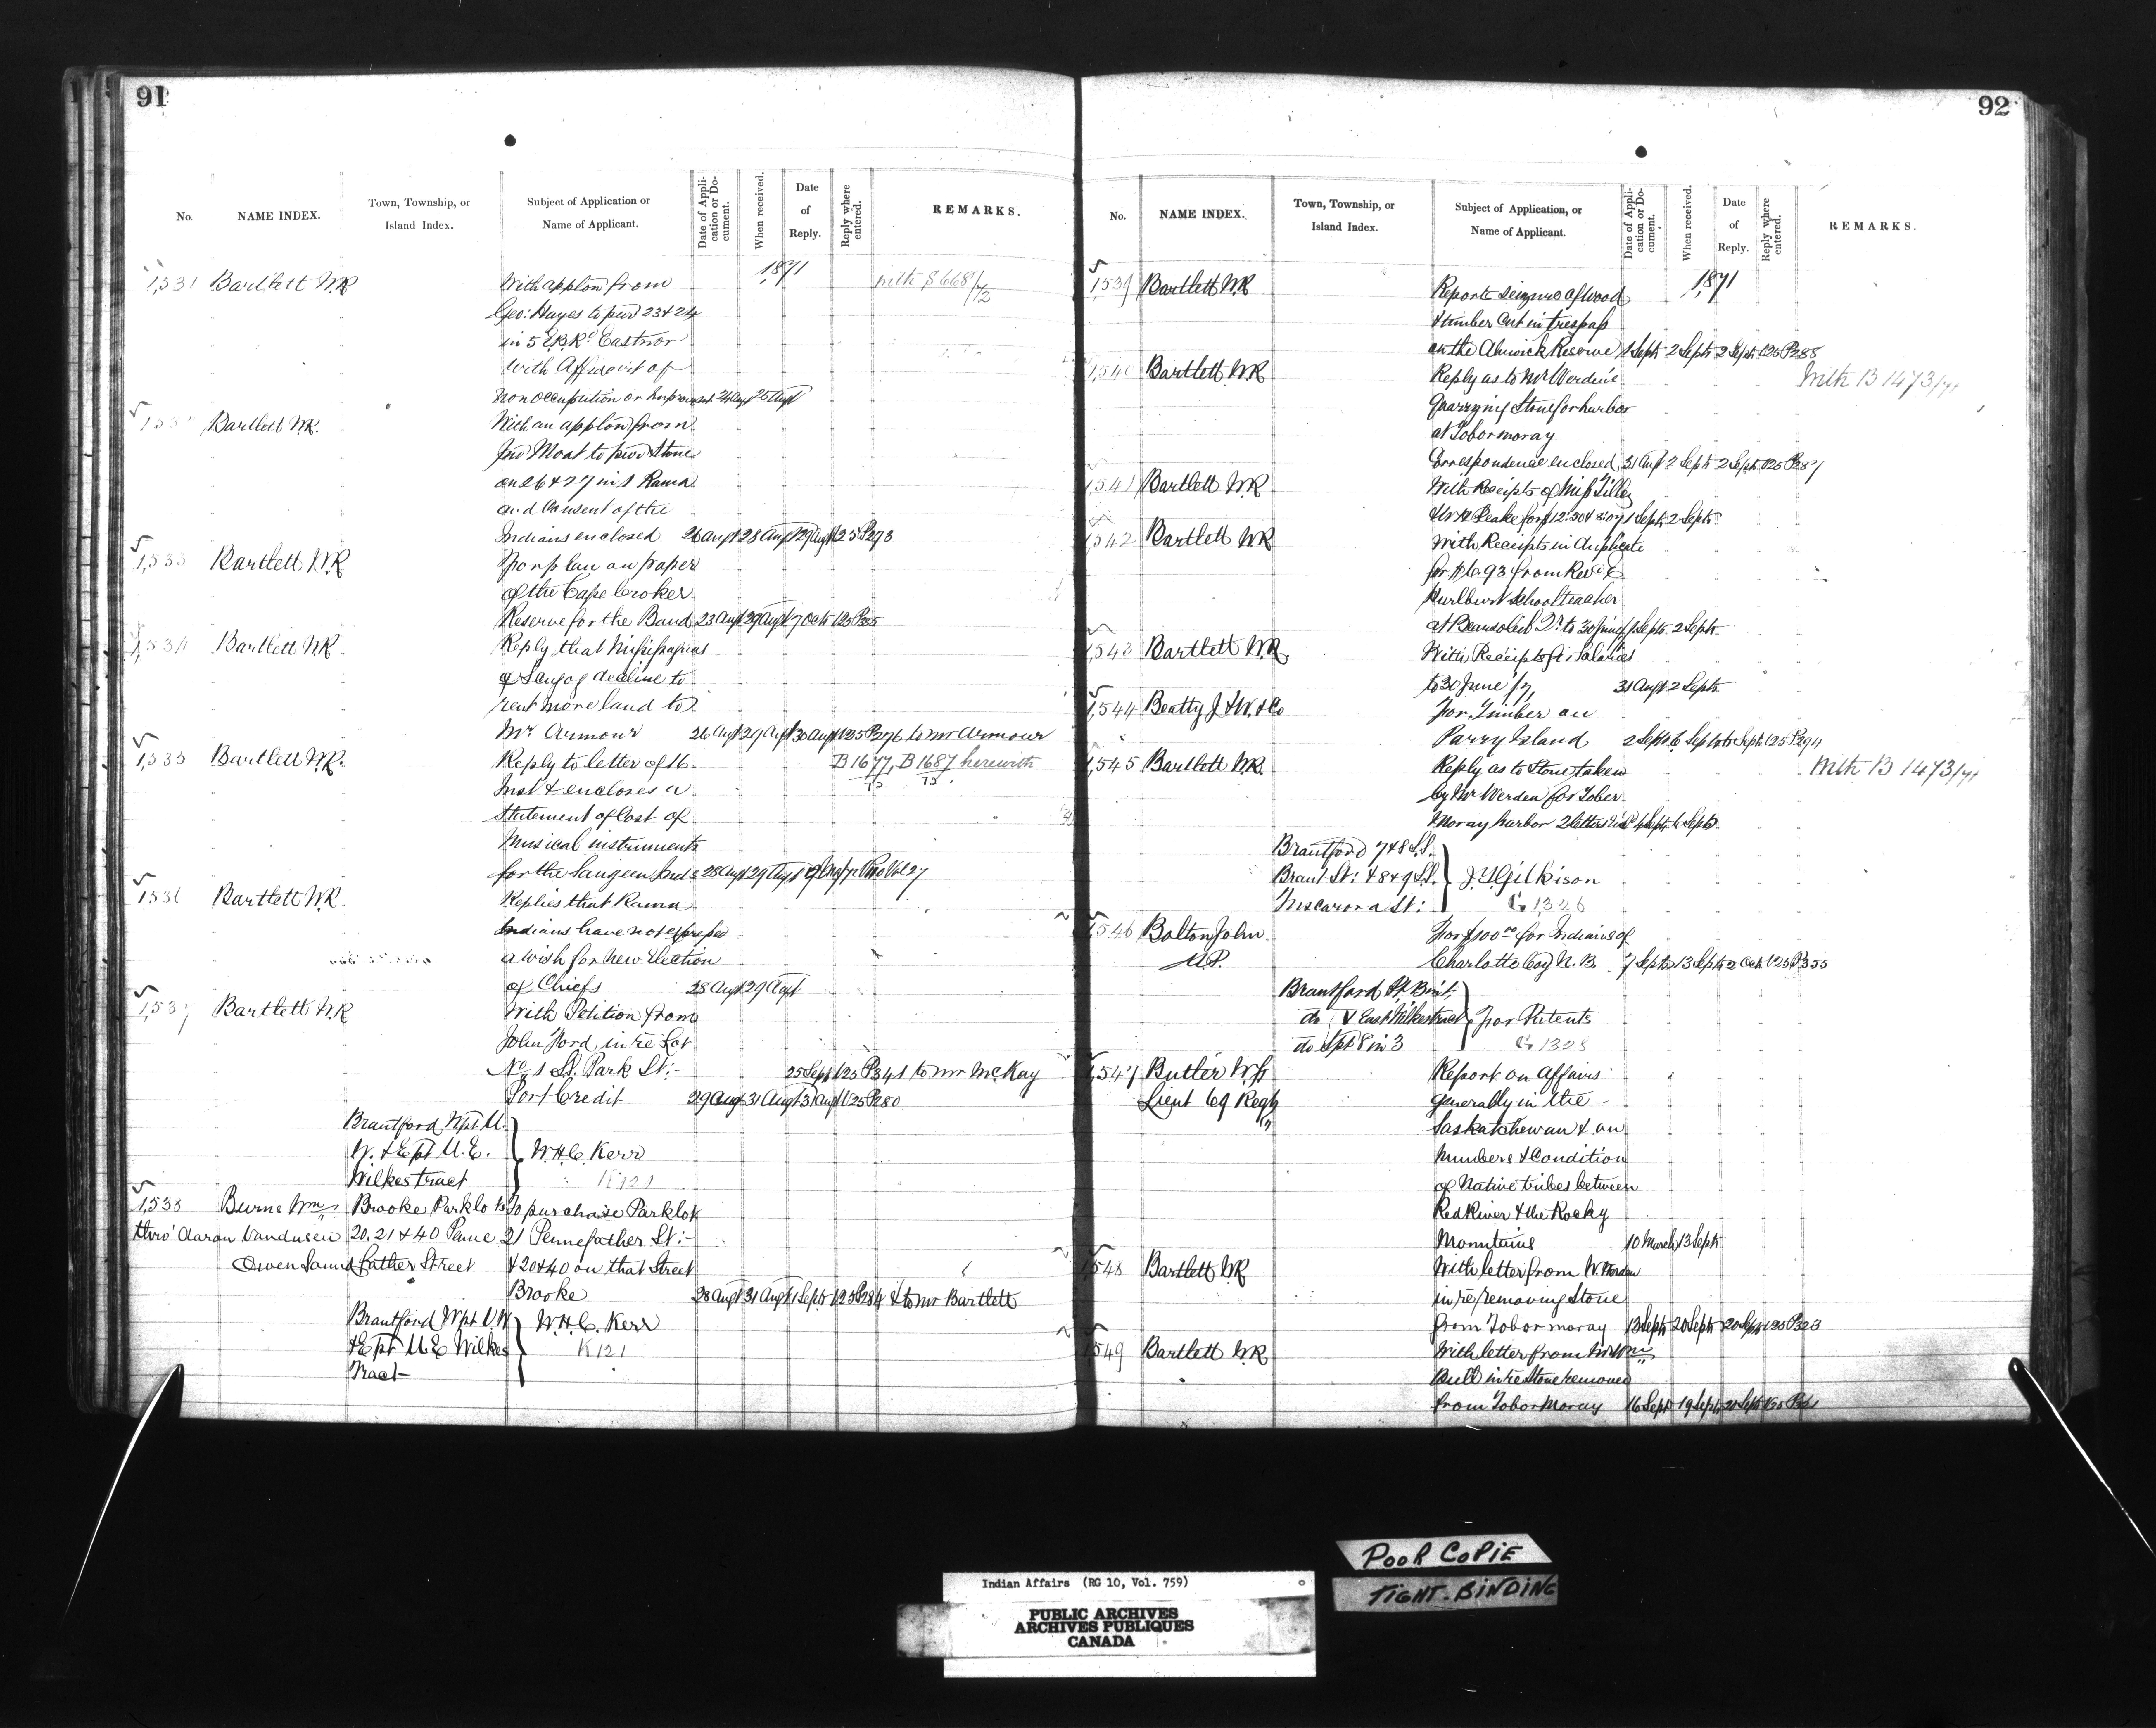 91
No. NAME INDEX. Town, Township, or Island Index. Subject of Application or Name of Applicant. Date of Application or Document. When received. Date of Reply. Reply where entered. REMARKS.
1871
1,531 Bartlett W.R. With applon from with S 668/72
Geo: Hayes to pur 23 & 24
in 5 E.B.R. Eastnor
with Affidavit of
non occupation or Improvemt 24 Augt 25 Augt
Bartlett W.R. With an applon from
Jno Moat to pur Stone
on 26 & 27 in 1 Rama
and Consent of the
Indians enclosed 26 Augt 28 Augt 29 Augt 125 P273
1,533 Bartlett W.R. For plan on paper
of the Cape Croker
Reserve for the Band 23 Augt 29 Augt 7 Octr 125
1,534 Bartlett W.R. Reply that Missisaguas
of Scugog decline to
rent more land to
Mr Armour 26 Augt 29 Augt 30 Augt 125 P276 to Mr Armour
1,535 Bartlett W.R. Reply to letter of 16 B 1677, B 1687 herewith
Inst & encloses a
Statement of Cost of
Musical instruments
for the Saugeen Inds 28 Augt 29 Augt Vol 27
1536 Bartlett W.R. Replies that Rama
Indians have not expressed
a wish for new Election
of Chiefs 28 Augt 29 Augt
1,537 Bartlett W.R. With Petition from
John Ford in re Lot
No 1 St. Park St:- 25 Sept 125 P341 to Mr McKay
Port Credit 29 Aug 31 Augt 31 Augt 125 P280
Brantford Wpt U.
W. & Ept U.E. W.H.C. Kerr
Wilkes tract K121
1,538 Burns Wm Brooke Parklots To purchase Parklot
thro' Aaron Vandusen 20, 21 & 40 Penne 21 Pennefather St:-
Owen Sound father Street & 20 & 40 on that Street
Brooke 28 Augt 31 Augt 1 Septr 125 P284 & to Mr Bartlett
Brantford Wpt U.W W.H.C. Kerr
& Ept U.E Wilkes K121
Tract
92
No. NAME INDEX. Town, Township, or Island Index. Subject of Application, or Name of Applicant. Date of Application or Document. When received. Date of Reply. Reply where entered. REMARKS.
1871
1,539 Bartlett W.R. Reports seizure of wood
& timber cut in trespass
on the Alnwick Reserve 1 Septr 2 Septr 2 Septr 125 P288
1,540 Bartlett W.R. Reply as to Mr Werden's With B 1473/71
quarrying Stone for harbor
at Tobormoray
Correspondence enclosed 31 Augt 2 Septr 2 Septr 125 P287
1,541 Bartlett W.R. With Receipts of Miss Tilley
& W.R. Peake for $12.50 & 1 Septr 2 Septr
1,542 Bartlett W.R. With Receipts in duplicate
for from Revd
Hurlburt School teacher
at Beausoleil Qr to 30 June 1 Septr 2 Septr
1,543 Bartlett W.R. With Receipts for Salaries
to 30 June 31 Augt 2 Septr
1,544 Beatty J & W. & Co For Timber on
Parry Island 2 Septr 6 Septr 6 Septr 125 P294
1,545 Bartlett W.R. Reply as to Stone taken With B 1473/71
by Mr Werden for Tober
Moray harbor 2 letters 4 Septr 6 Septr
Brantford 7 & 8 S.S.
Brant St: & 8 & 9 S.S. J.T. Gilkison
Tuscarora St: G 1326
1,546 Bolton John For $100.00 for Indians of
M.P. Charlotte Coy N.B. 7 Septr 13 Septr 2 Octr 125 P355
Brantford
do & East Wilkes tract for Patents
do Spt 8 in 3 G 1328
1,547 Butler W.F. Report on Affairs
Lieut 69 Regt generally in the
Saskatchewan & on
Numbers & Condition
of Native tribes between
Red River & the Rocky
Mountains 10 March 13 Septr
1,548 Bartlett W.R. With letter from W. Werden
in re removing Stone
from Tobormoray 13 Septr 20 Septr 20 Septr 125 P323
1,549 Bartlett W.R. With letter from Mr Wm
Bull in re Stone removed
from Tobor Moray 16 Septr 19 Septr 20 Septr 125
POOR COPIE
TIGHT-BINDING
Indian Affairs (RG 10, Vol. 759)
PUBLIC ARCHIVES
ARCHIVES PUBLIQUES
CANADA